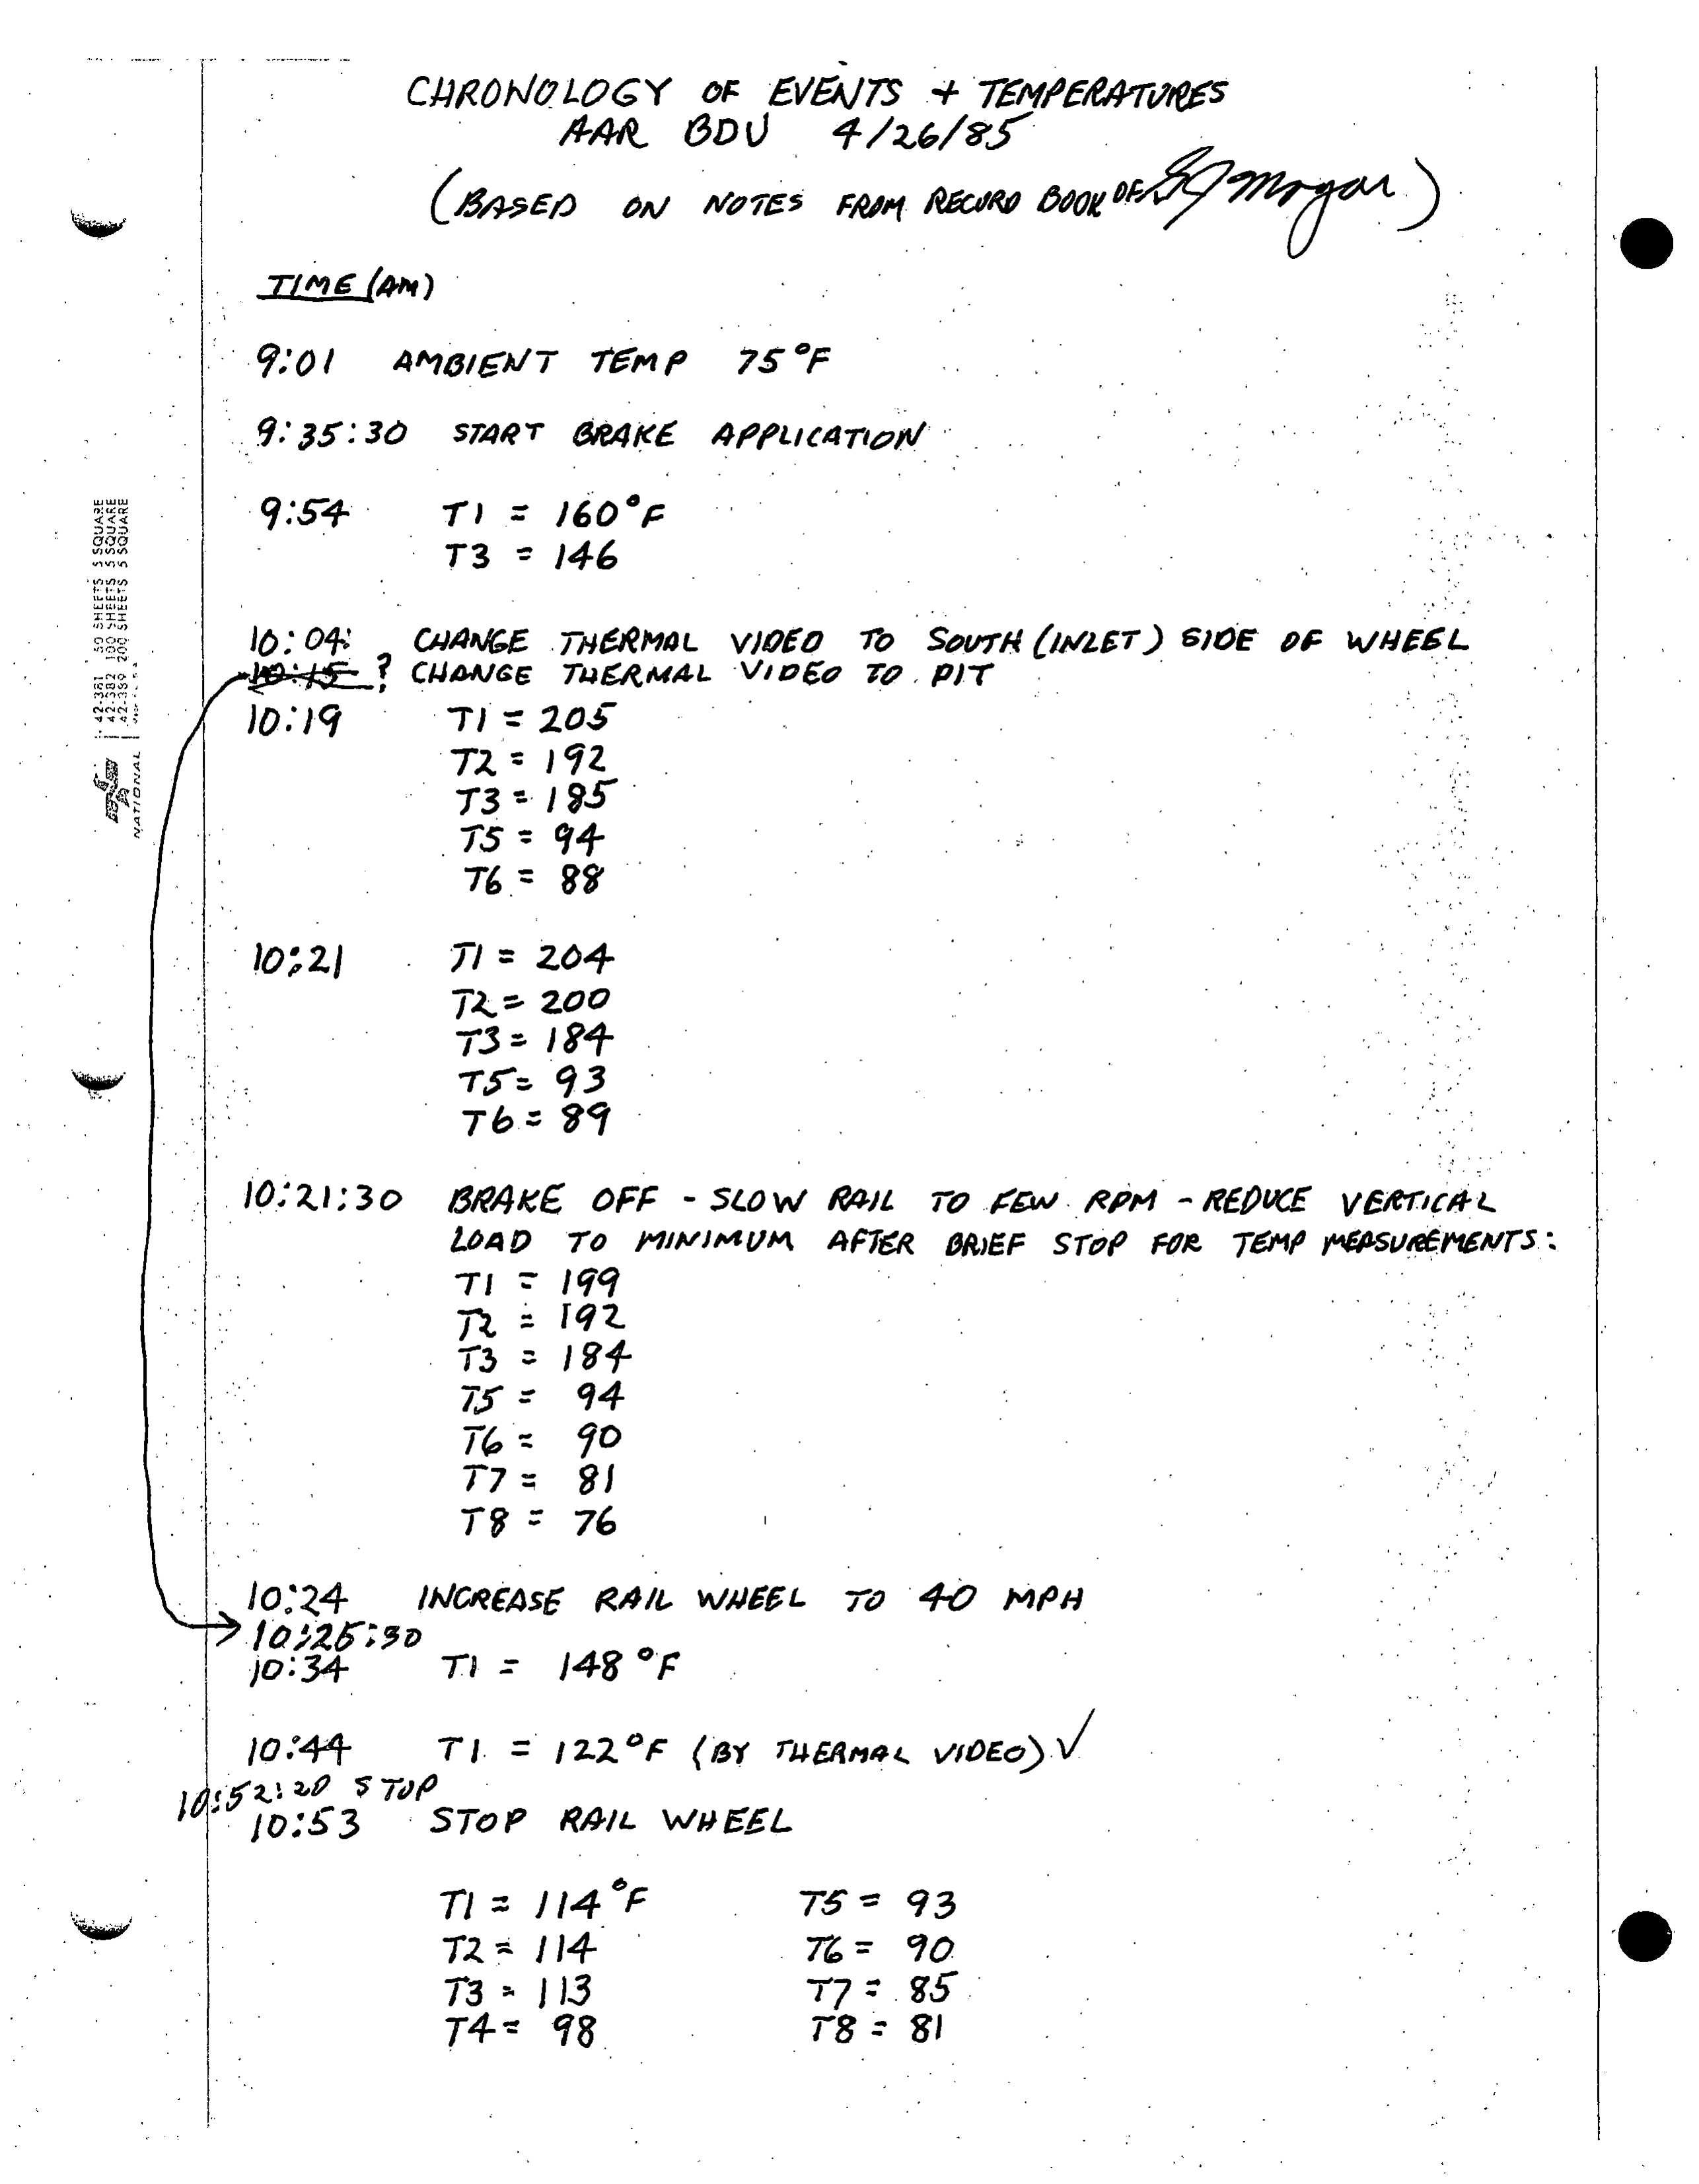 CHRONOLOGY OF EVENTS + TEMPERATURES
AAR BDU 4/26/85
(BASED ON NOTES FROM RECORD BOOK OF GJ Morgan)
TIME (AM)
9:01 AMBIENT TEMP 75°F
9:35:30 START BRAKE APPLICATION
9:54 T1 = 160°F
T3 = 146
10:04: CHANGE THERMAL VIDEO TO SOUTH (INLET) SIDE OF WHEEL
10:15 ? CHANGE THERMAL VIDEO TO PIT
10:19 T1 = 205
T2 = 192
T3 = 185
T5 = 94
T6 = 88
10:21 T1 = 204
T2 = 200
T3 = 184
T5 = 93
T6 = 89
10:21:30 BRAKE OFF - SLOW RAIL TO FEW RPM - REDUCE VERTICAL
LOAD TO MINIMUM AFTER BRIEF STOP FOR TEMP MEASUREMENTS:
T1 = 199
T2 = 192
T3 = 184
T5 = 94
T6 = 90
T7 = 81
T8 = 76
10:24 INCREASE RAIL WHEEL TO 40 MPH
10:25:30
10:34 T1 = 148°F
10:44 T1 = 122°F (BY THERMAL VIDEO) ✓
10:52:20 STOP
10:53 STOP RAIL WHEEL
T1 = 114°F T5 = 93
T2 = 114 T6 = 90
T3 = 113 T7 = 85
T4 = 98 T8 = 81
42-381 50 SHEETS 5 SQUARE
42-382 100 SHEETS 5 SQUARE
42-389 200 SHEETS 5 SQUARE
NATIONAL